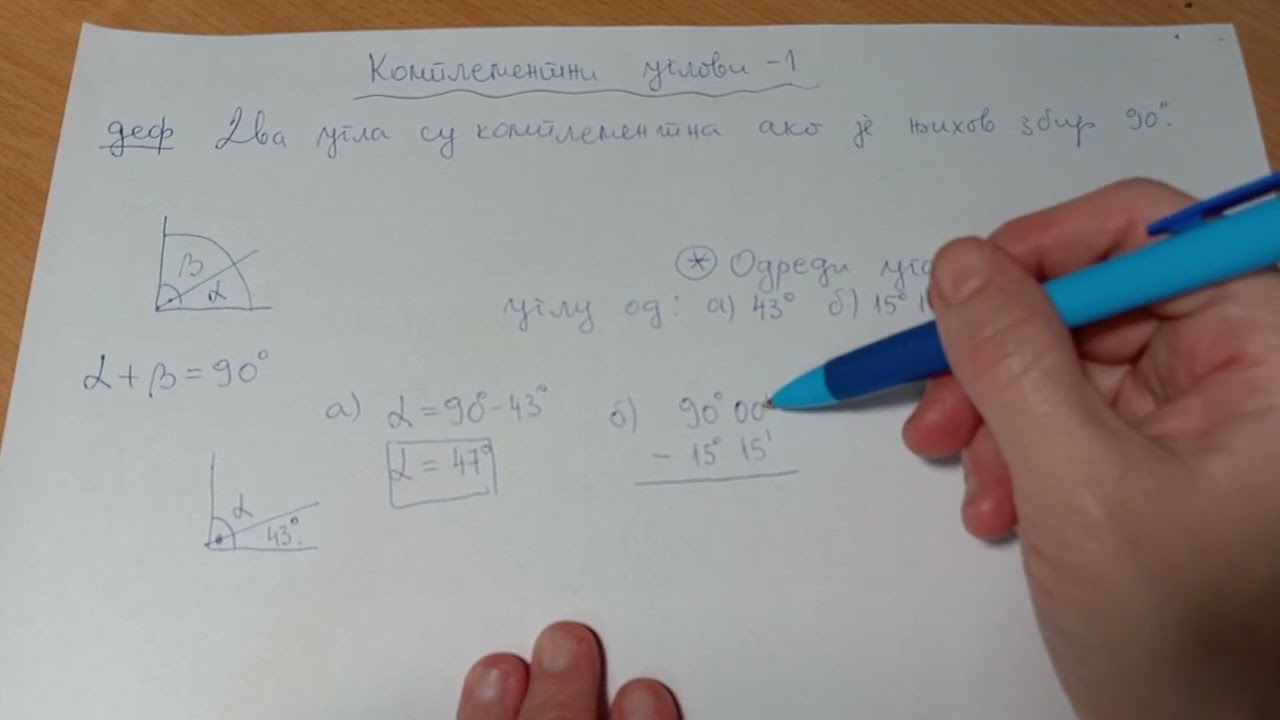 Комплементни углови - 1
деф Два угла су комплементна ако је њихов збир 90°.
β
α
α + β = 90°
⊛ Одреди
углу од: а) 43° б) 15°
а) α = 90° - 43°
α = 47°
б) 90° 00'
- 15° 15'
α
43°